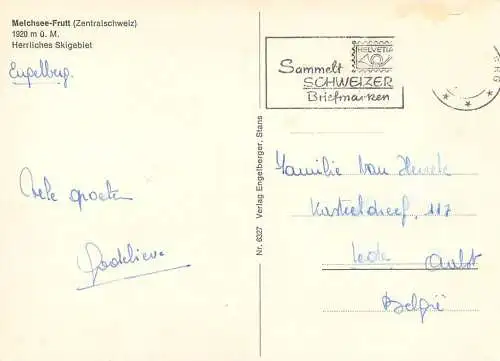 Melchsee-Frutt (Zentralschweiz)
1920 m ü. M.
Herrliches Skigebiet
Engelberg.
Vele groeten
Godelieve
Nr. 6327 Verlag Engelberger, Stans
HELVETIA
Sammelt
SCHWEIZER
Briefmarken
Familie Van
Kasteeldreef, 117
Lede, Aalst
België